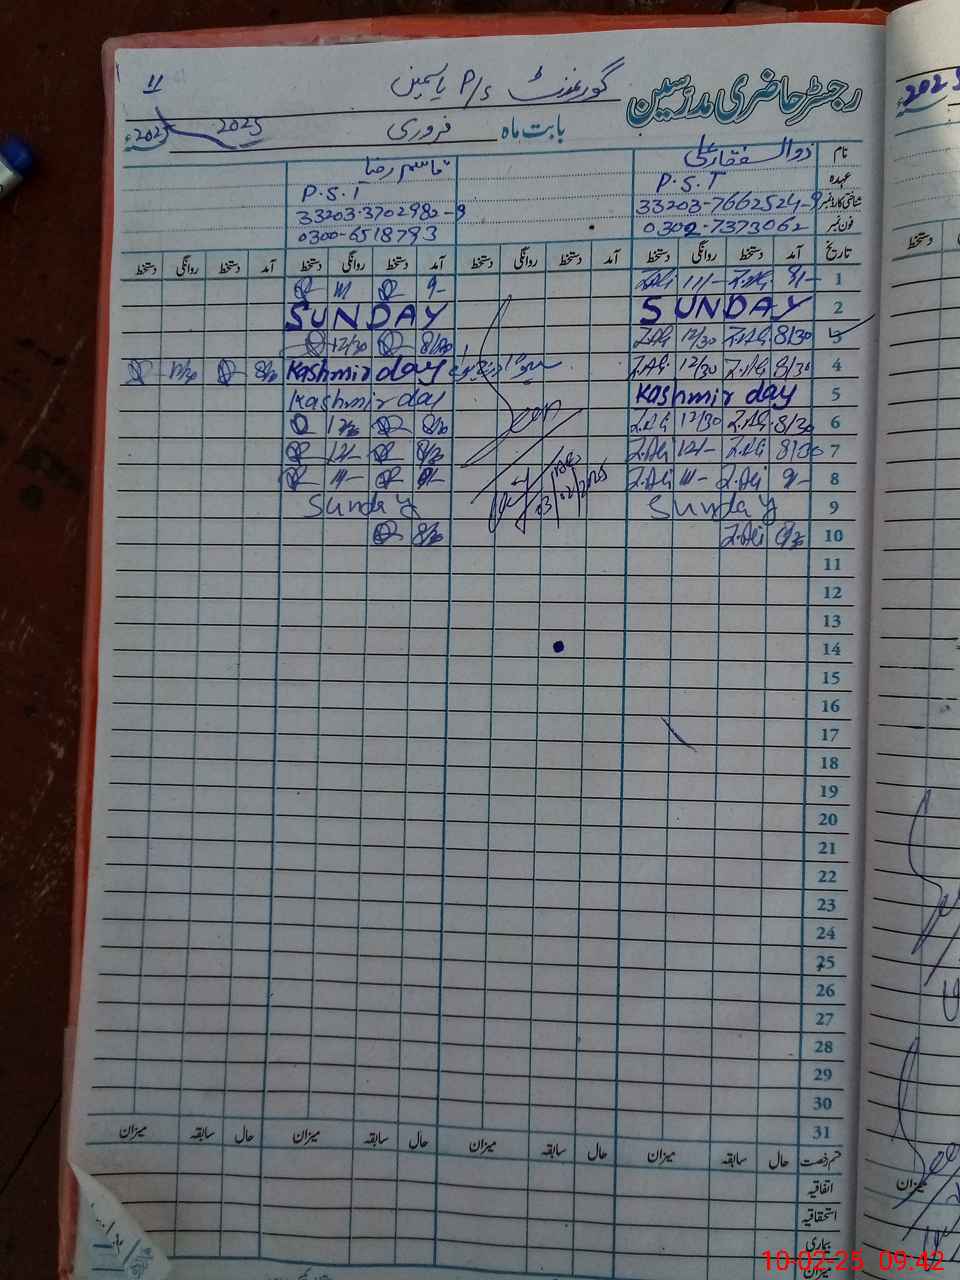 رجسٹر حاضری مدرسین گورنمنٹ P/s یاسمین 11
بابت ماہ فروری 2025 2025ء
نام ذوالفقار علی قاسم رضا
عہدہ P.S.T P.S.T
شناختی کارڈ نمبر 33203-7662524-9 33203-3702982-9
فون نمبر 0302-7373062 0300-6518793
تاریخ آمد دستخط روانگی دستخط آمد دستخط روانگی دستخط آمد دستخط روانگی دستخط آمد دستخط روانگی دستخط
1 8/- Z.Ali 11/- Z.Ali 9-
2 SUNDAY SUNDAY
3 8/30 Z.Ali 12/30 Z.Ali 8/30 12/30
4 8/30 Z.Ali 12/30 Z.Ali Kashmir day 8/30
5 Kashmir day Kashmir day
6 8/30 Z.Ali 12/30 Z.Ali 8/30 12/30 Seen
7 8/30 Z.Ali 12/- Z.Ali 8/30 12/-
8 9/- Z.Ali 11/- Z.Ali 9/- 11/-
9 Sunday Sunday
10 8/30 Z.Ali 8/30
11
12
13
14
15
16
17
18
19
20
21
22
23
24
25
26
27
28
29
30
31
حال سابقہ میزان حال سابقہ میزان حال سابقہ میزان حال سابقہ میزان
اتفاقیہ
استحقاقیہ
بیماری
میزان
2025
دستخط
میزان
10-02-25 09:42